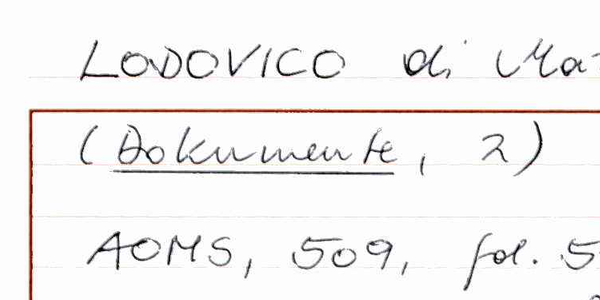 LODOVICO di Ma
(Dokumente, 2)
AOMS, 509, fol. 5